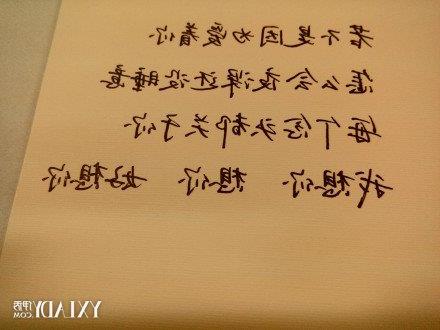 若不是因为爱着你
怎么会夜深还没睡意
每个念头都关于你
我想你 想你 好想你
YXLADY伊秀.COM